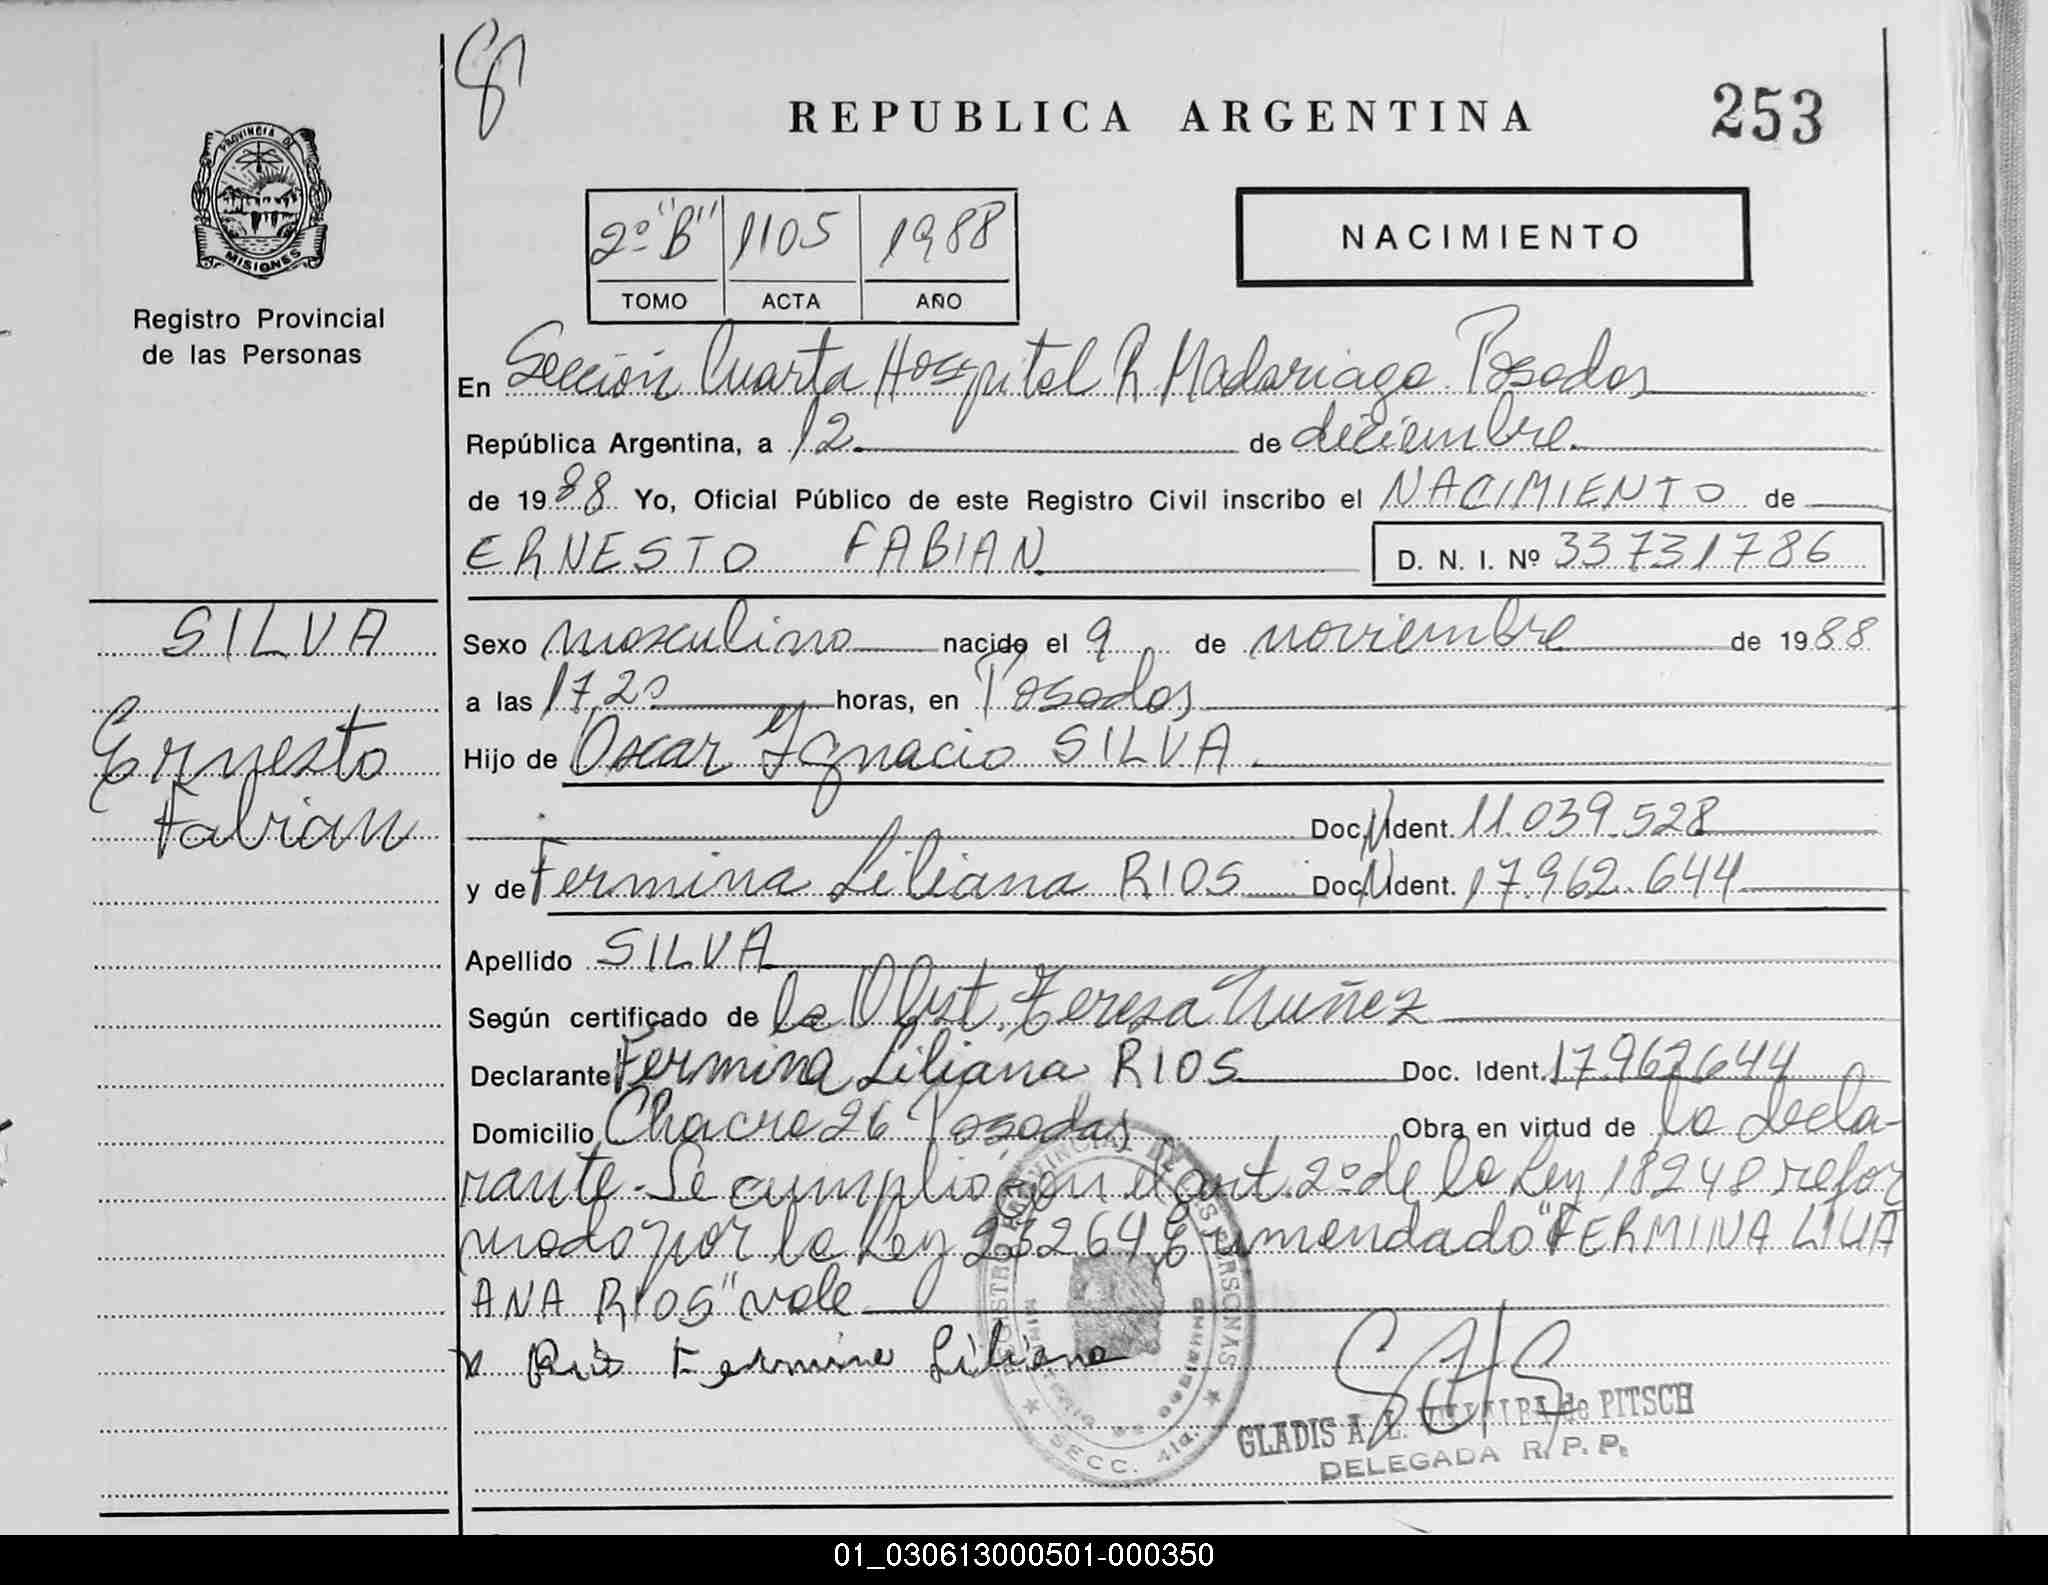 8
REPUBLICA ARGENTINA
253
PROVINCIA DE
MISIONES
Registro Provincial
de las Personas
2º "B" 1105 1988
TOMO ACTA AÑO
NACIMIENTO
En Sección Cuarta Hospital R. Madariaga Posadas
República Argentina, a 12 de diciembre
de 1988 Yo, Oficial Público de este Registro Civil inscribo el NACIMIENTO de
ERNESTO FABIAN
D. N. I. Nº 33731786
SILVA
Ernesto
Fabian
Sexo masculino nacido el 9 de noviembre de 1988
a las 17,20 horas, en Posadas
Hijo de Oscar Ignacio SILVA
Doc. N Ident. 11.039.528
y de Fermina Liliana RIOS Doc. N Ident. 17.962.644
Apellido SILVA
Según certificado de la Obst. Teresa Nuñez
Declarante Fermina Liliana RIOS Doc. Ident. 17.962644
Domicilio Chacra 26 Posadas Obra en virtud de la decla-
rante. Se cumplió con el art. 2º de la Ley 18248 refor
mado por la Ley 23264 Enmendado "FERMINA LILIA
ANA RIOS" vale
x Rios Fermina Liliana
GLADIS A. L. VILLALBA de PITSCH
DELEGADA R. P. P.
SECC. 4ta.
01_030613000501-000350